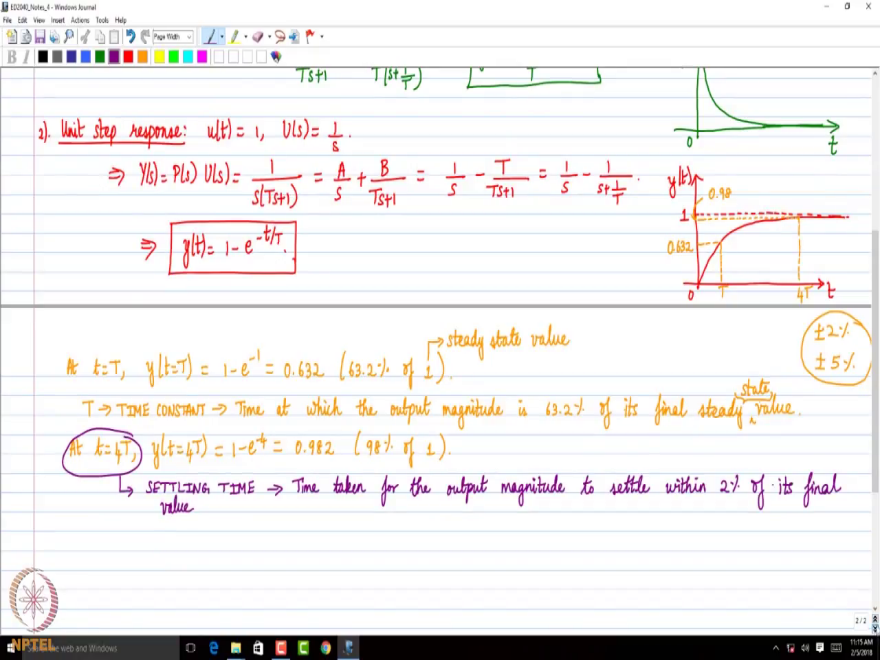 ED2040_Notes_4 - Windows Journal
File Edit View Insert Actions Tools Help
Page Width
B I
Ts+1 T(s+1/T) T
0 t
2). Unit step response: u(t)= 1, U(s)= 1/s.
⇒ Y(s)= P(s) U(s)= 1/(s(Ts+1)) = A/s + B/(Ts+1) = 1/s - T/(Ts+1) = 1/s - 1/(s+1/T).
⇒ y(t)= 1 - e^(-t/T).
y(t)
0.98
1
0.632
0 T 4T t
→ steady state value
±2%
±5%
At t=T, y(t=T) = 1-e^-1 = 0.632 (63.2% of 1).
state
T → TIME CONSTANT → Time at which the output magnitude is 63.2% of its final steady value.
At t=4T, y(t=4T) = 1-e^-4 = 0.982 (98% of 1).
→ SETTLING TIME → Time taken for the output magnitude to settle within 2% of its final
value
2/2
NPTEL
the web and Windows
11:15 AM
2/5/2018